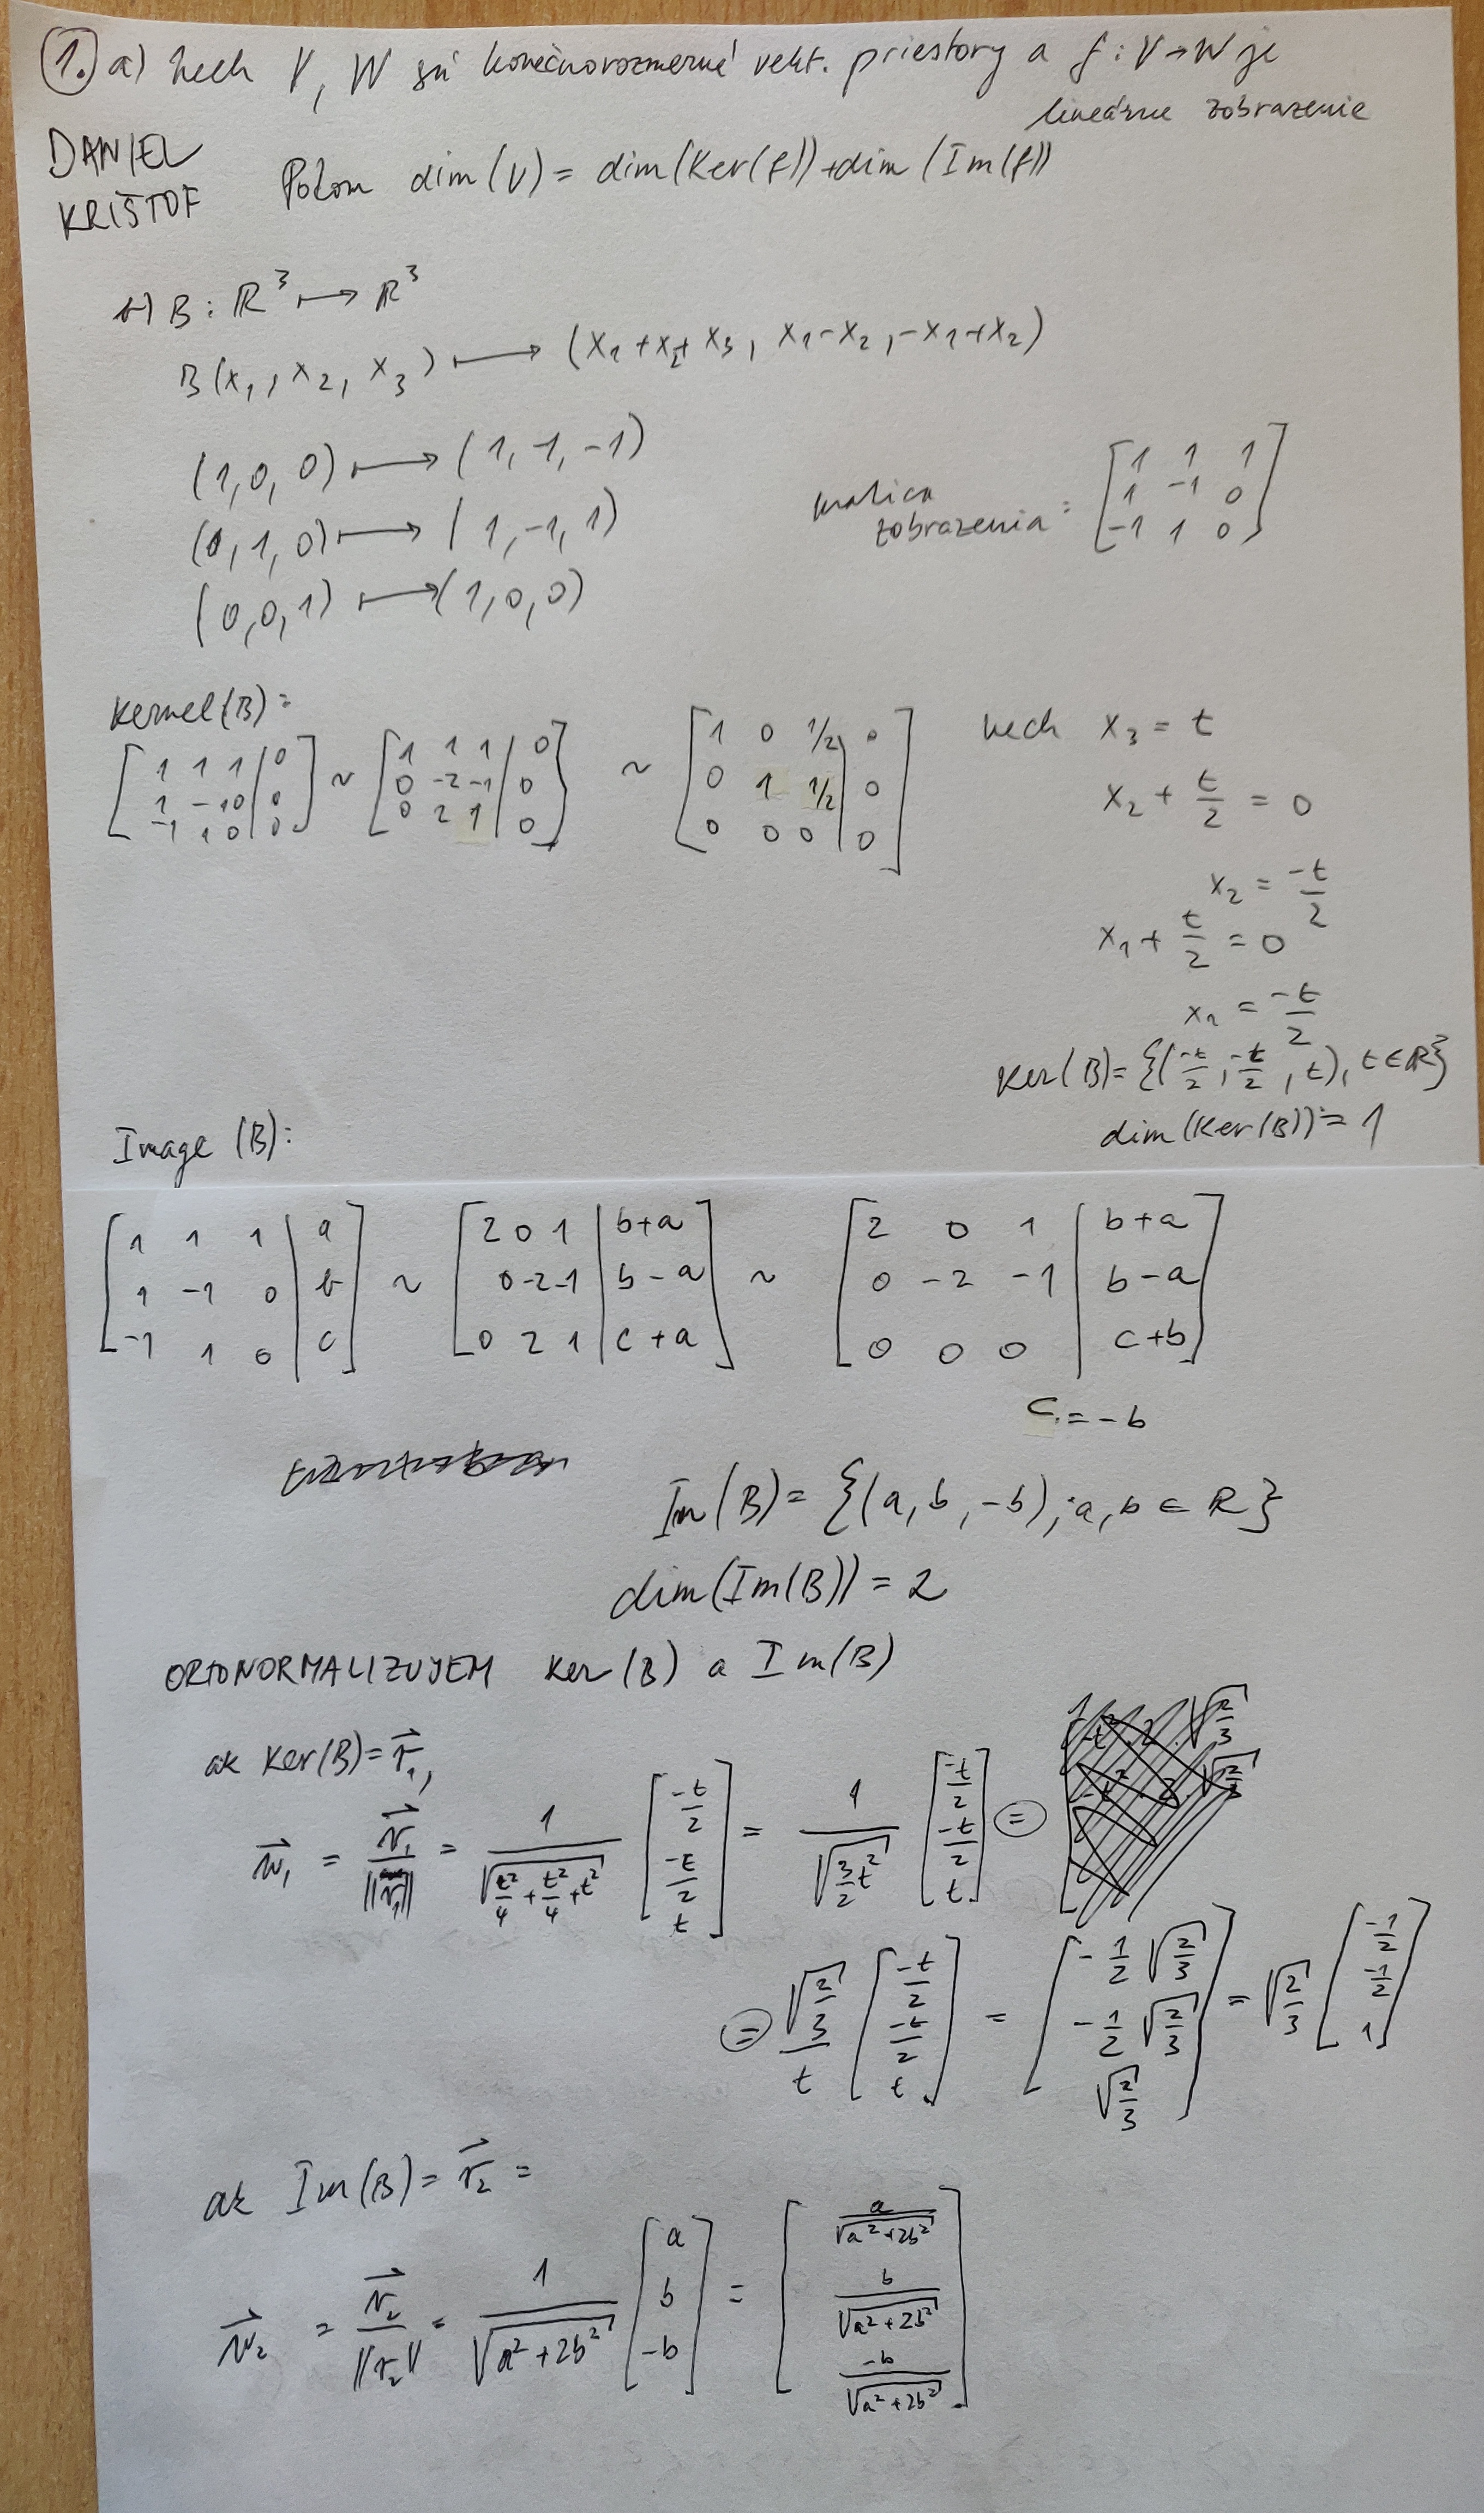 1. a) Nech V, W sú konečnorozmerné vekt. priestory a f: V→W je
lineárne zobrazenie
DANIEL
KRIŠTOF
Potom dim(V) = dim(Ker(f)) + dim(Im(f))
b) B: ℝ³ ⟼ ℝ³
B(x₁, x₂, x₃) ⟼ (x₁+x₂+x₃, x₁-x₂, -x₁+x₂)
(1,0,0) ⟼ (1,1,-1)
(0,1,0) ⟼ (1,-1,1)
(0,0,1) ⟼ (1,0,0)
matica
zobrazenia = [1 1 1; 1 -1 0; -1 1 0]
Kernel(B):
[1 1 1 | 0; 1 -1 0 | 0; -1 1 0 | 0] ~ [1 1 1 | 0; 0 -2 -1 | 0; 0 2 1 | 0] ~ [1 0 1/2 | 0; 0 1 1/2 | 0; 0 0 0 | 0]
nech x₃ = t
x₂ + t/2 = 0
x₂ = -t/2
x₁ + t/2 = 0
x₁ = -t/2
Ker(B) = {(-t/2, -t/2, t), t∈ℝ}
dim(Ker(B)) = 1
Image (B):
[1 1 1 | a; 1 -1 0 | b; -1 1 0 | c] ~ [2 0 1 | b+a; 0 -2 -1 | b-a; 0 2 1 | c+a] ~ [2 0 1 | b+a; 0 -2 -1 | b-a; 0 0 0 | c+b]
c = -b
Im(B) = {(a, b, -b); a, b ∈ ℝ}
dim(Im(B)) = 2
ORTONORMALIZUJEM Ker(B) a Im(B)
ak Ker(B) = v⃗₁,
w⃗₁ = v⃗₁/||v⃗₁|| = 1/√(t²/4 + t²/4 + t²) [-t/2; -t/2; t] = 1/√(3/2 t²) [-t/2; -t/2; t] =
= √(2/3)/t [-t/2; -t/2; t] = [-1/2 √(2/3); -1/2 √(2/3); √(2/3)] = √(2/3) [-1/2; -1/2; 1]
ak Im(B) = v⃗₂ =
w⃗₂ = v⃗₂/||v₂|| = 1/√(a²+2b²) [a; b; -b] = [a/√(a²+2b²); b/√(a²+2b²); -b/√(a²+2b²)]